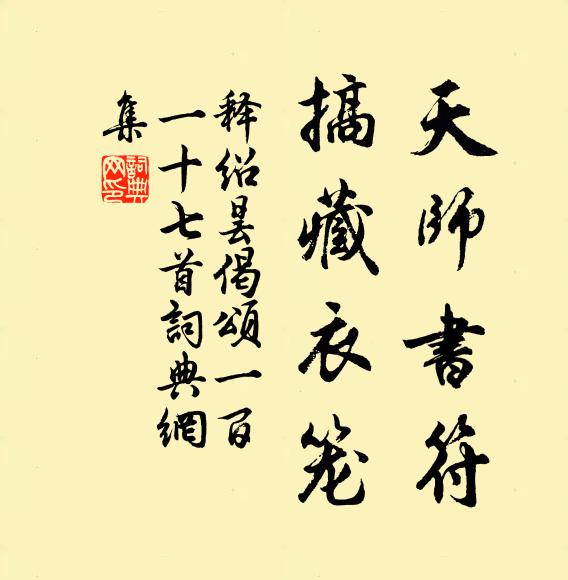 天師書符
搞藏衣笼
释绍昙偈頌一百
一十七首詞典網
集
詞典網印